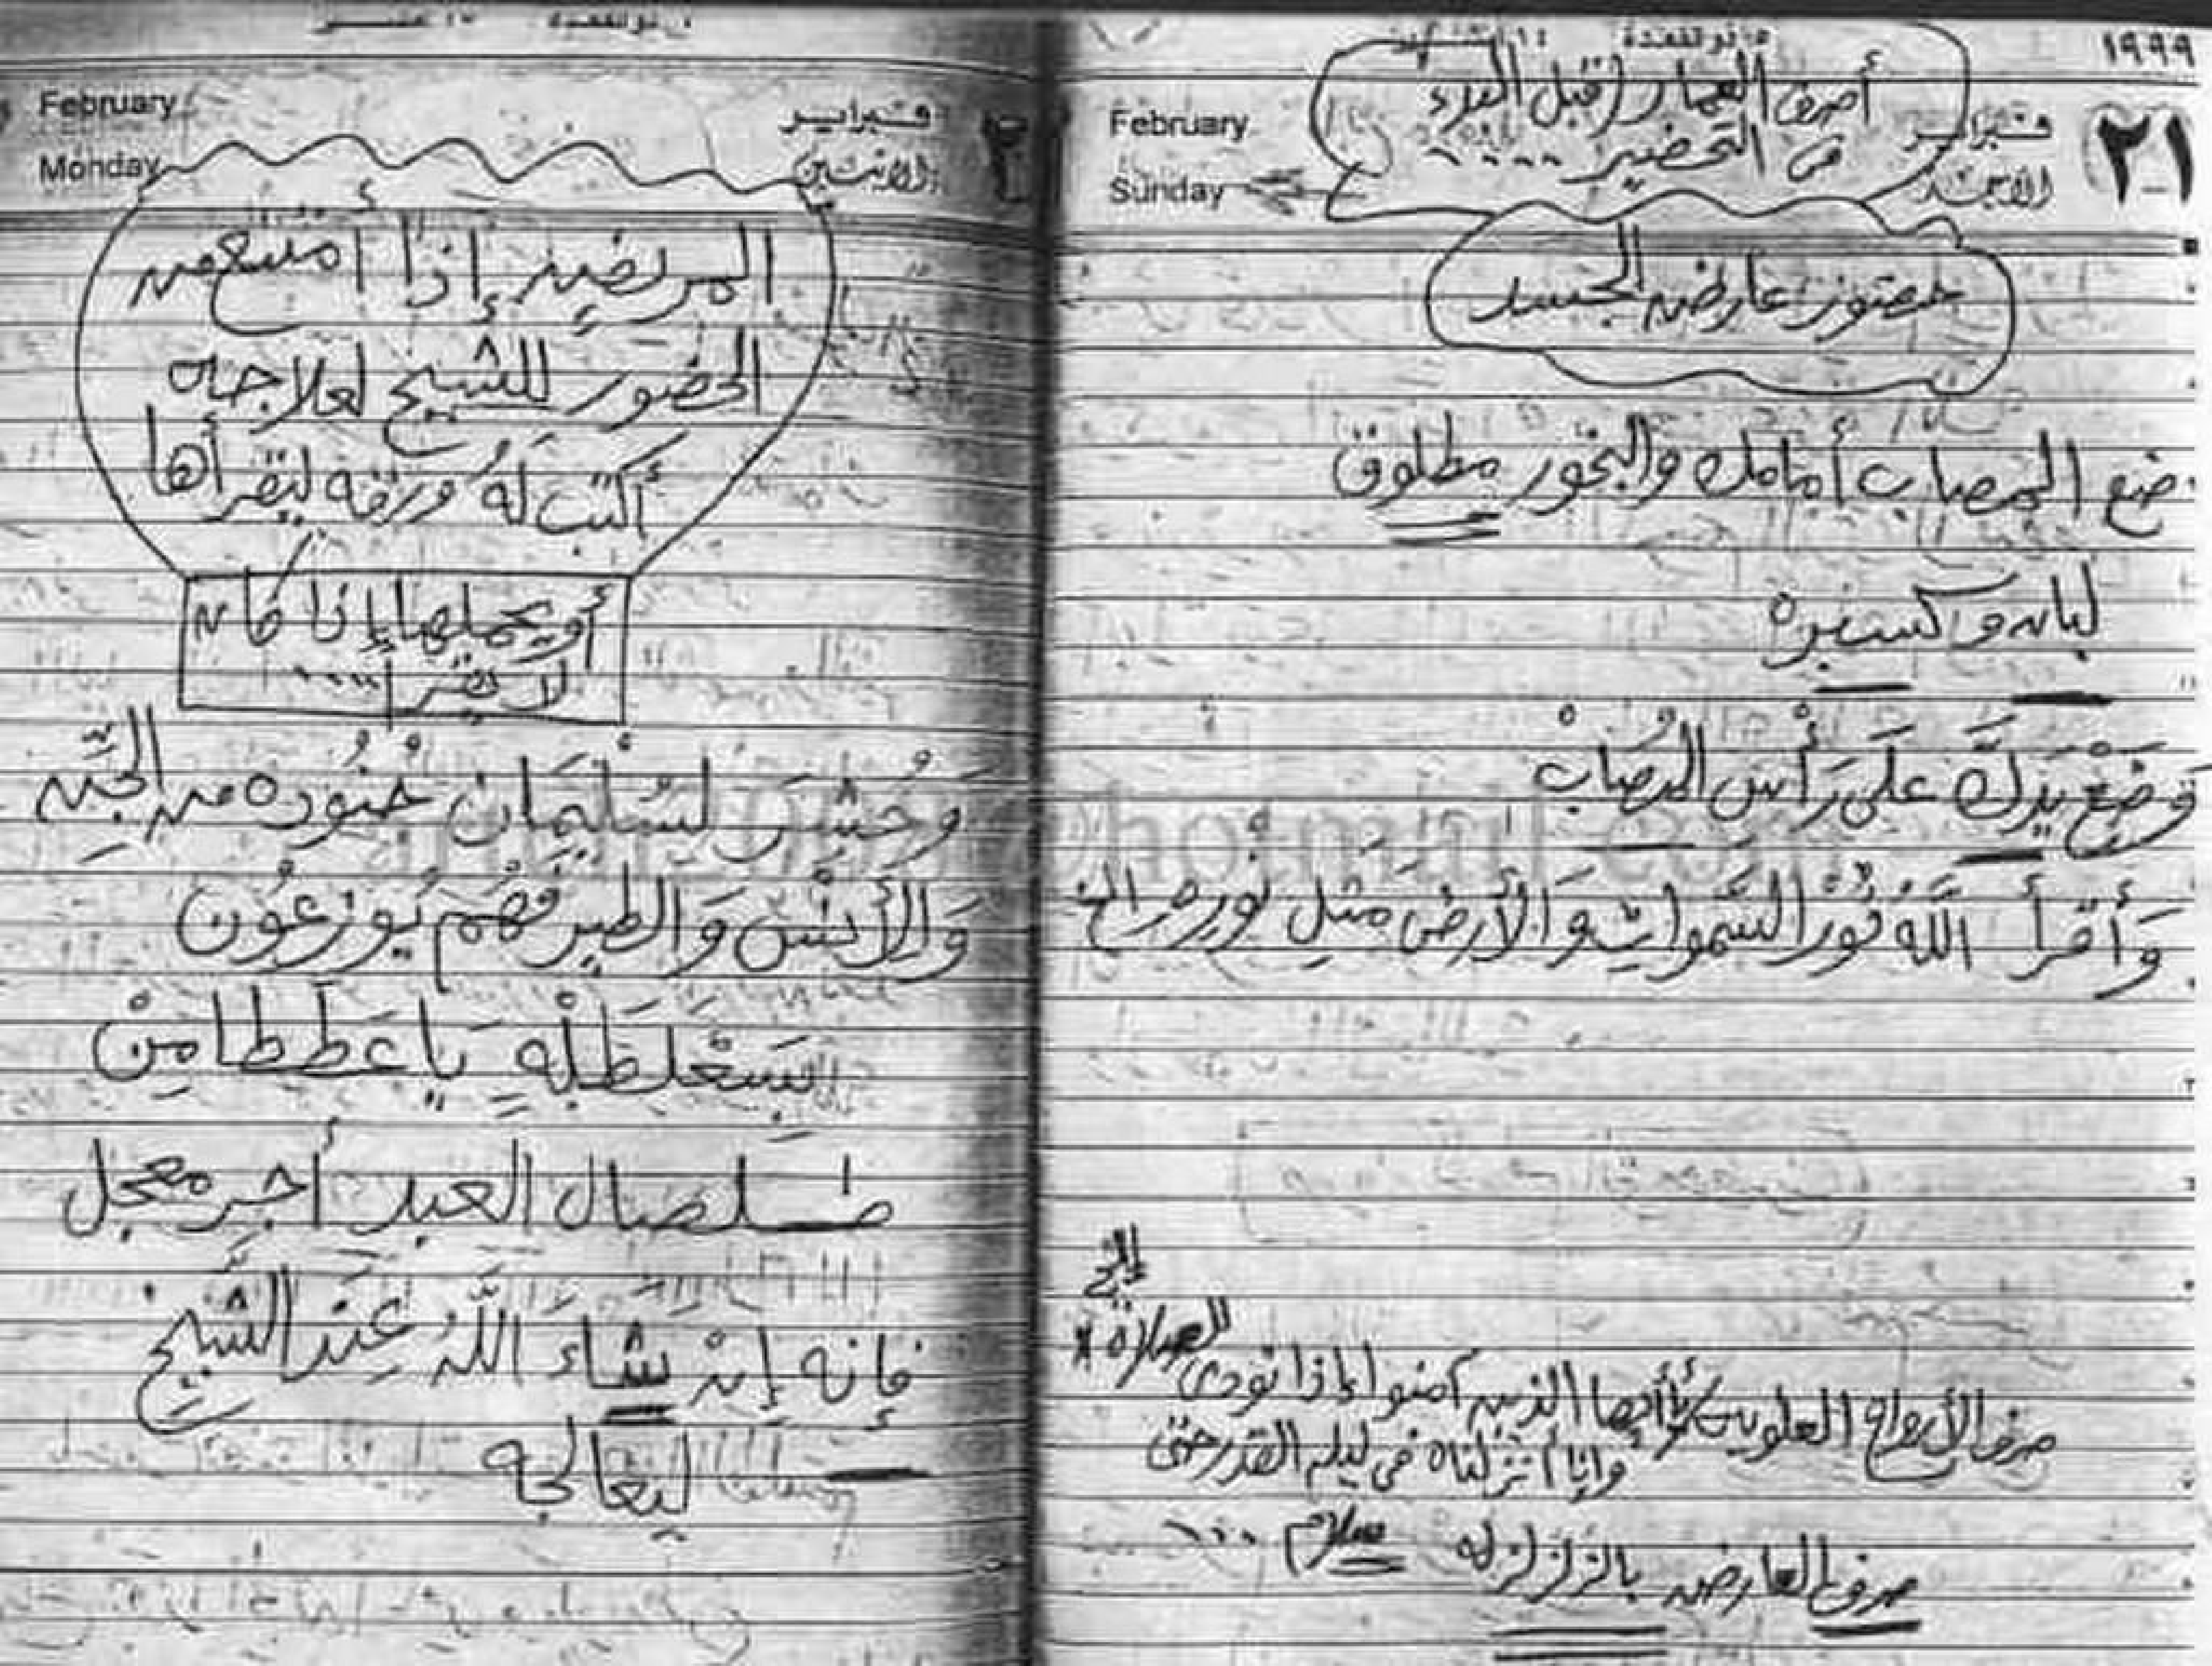 ١٩٩٩
February
فبراير
٢١
Sunday
الأحد
أصرف العمار قبل البدء
فى التحضير
حضور عارض الجسد
ضع المصاب أمامك والبخور مطلوق
لبان وكسبره
وَضَعْ يَدَكَ عَلَى رَأْس المُصَابْ
وَأقرأ اللَّهُ نُورُ السَّمواتِ وَالأرضِ مَثَلِ نُورِهِ الخ
صرف الأرواح العلويه يأأيها الذين آمنوا إذا نودى للصلاة الخ
وإنا أنزلناه فى ليله القدر حتى
صرف العارض بالزلزله سلام
February
فبراير
Monday
الاثنين
المريض إذا أمتنع من
الحضور للشيخ لعلاجه
أكتب لَهُ ورقه ليقرأها
أو يحملها إذا كان
لا يقرأ
وَحُشِرَ لسُلَيْمَان جُنُوده من الجِنِّ
وَالأِنْسِ وَالطير فَهُم يُوزعُون
يَا عَطَطَا مِنْ
صلصال العبد أجر معجل
فإنه إن شَاءَ اللَّهُ عِنَد الشَّيخ
ليعالجه